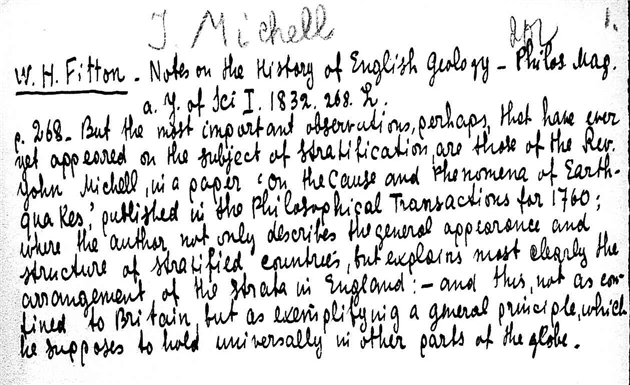 J. Michell
1.
W. H. Fitton - Notes on the History of English Geology - Philos. Mag.
a. J. of Sci I. 1832. 268. L.
p. 268 - But the most important observations, perhaps, that have ever
yet appeared on the subject of stratification, are those of the Rev.
John Michell, in a paper 'On the Cause and Phenomena of Earth-
quakes,' published in the Philosophical Transactions for 1760;
where the author not only describes the general appearance and
structure of stratified countries, but explains most clearly the
arrangement of the strata in England: - and this, not as con-
fined to Britain, but as exemplifying a general principle, which
he supposes to hold universally in other parts of the globe.